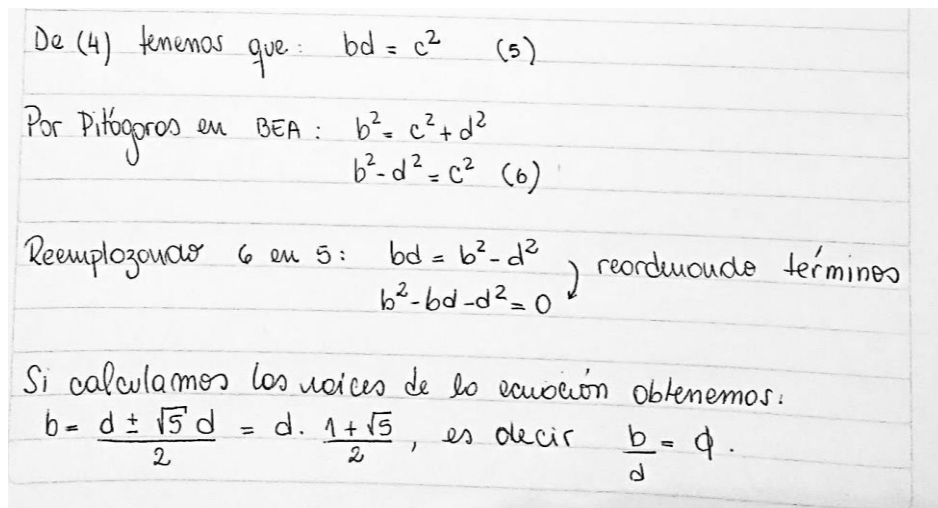 De (4) tenemos que: bd = c² (5)
Por Pitágoras en BEA: b² = c² + d²
b² - d² = c² (6)
Reemplazando 6 en 5: bd = b² - d²
b² - bd - d² = 0 reordenando términos
Si calculamos las raíces de la ecuación obtenemos:
b = (d ± √5 d)/2 = d · (1 + √5)/2, es decir b/d = ϕ.